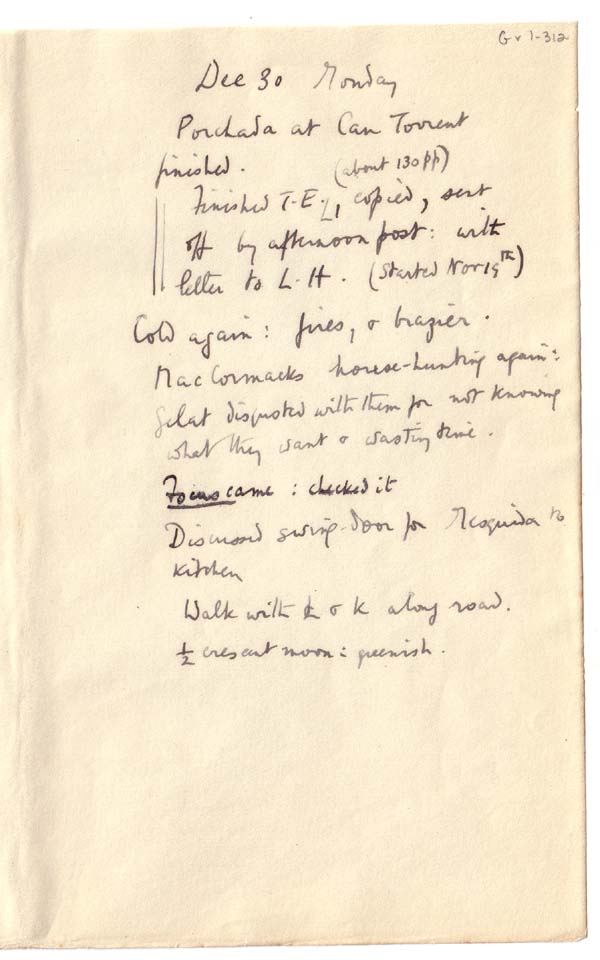 G v 1-312
Dec 30 Monday
Porchada at Can Torrent
finished. (about 130 pp)
Finished T-E. L, copied, sent
off by afternoon post: with
letter to L-H. (Started Nov 19th)
Cold again: fires, & brazier.
MacCormacks house-hunting again:
Gelat disgusted with them for not knowing
what they want & wasting time.
Focus came: checked it
Discussed swing-door for Mesquida to
kitchen
Walk with L & K along road.
½ crescent moon: greenish.